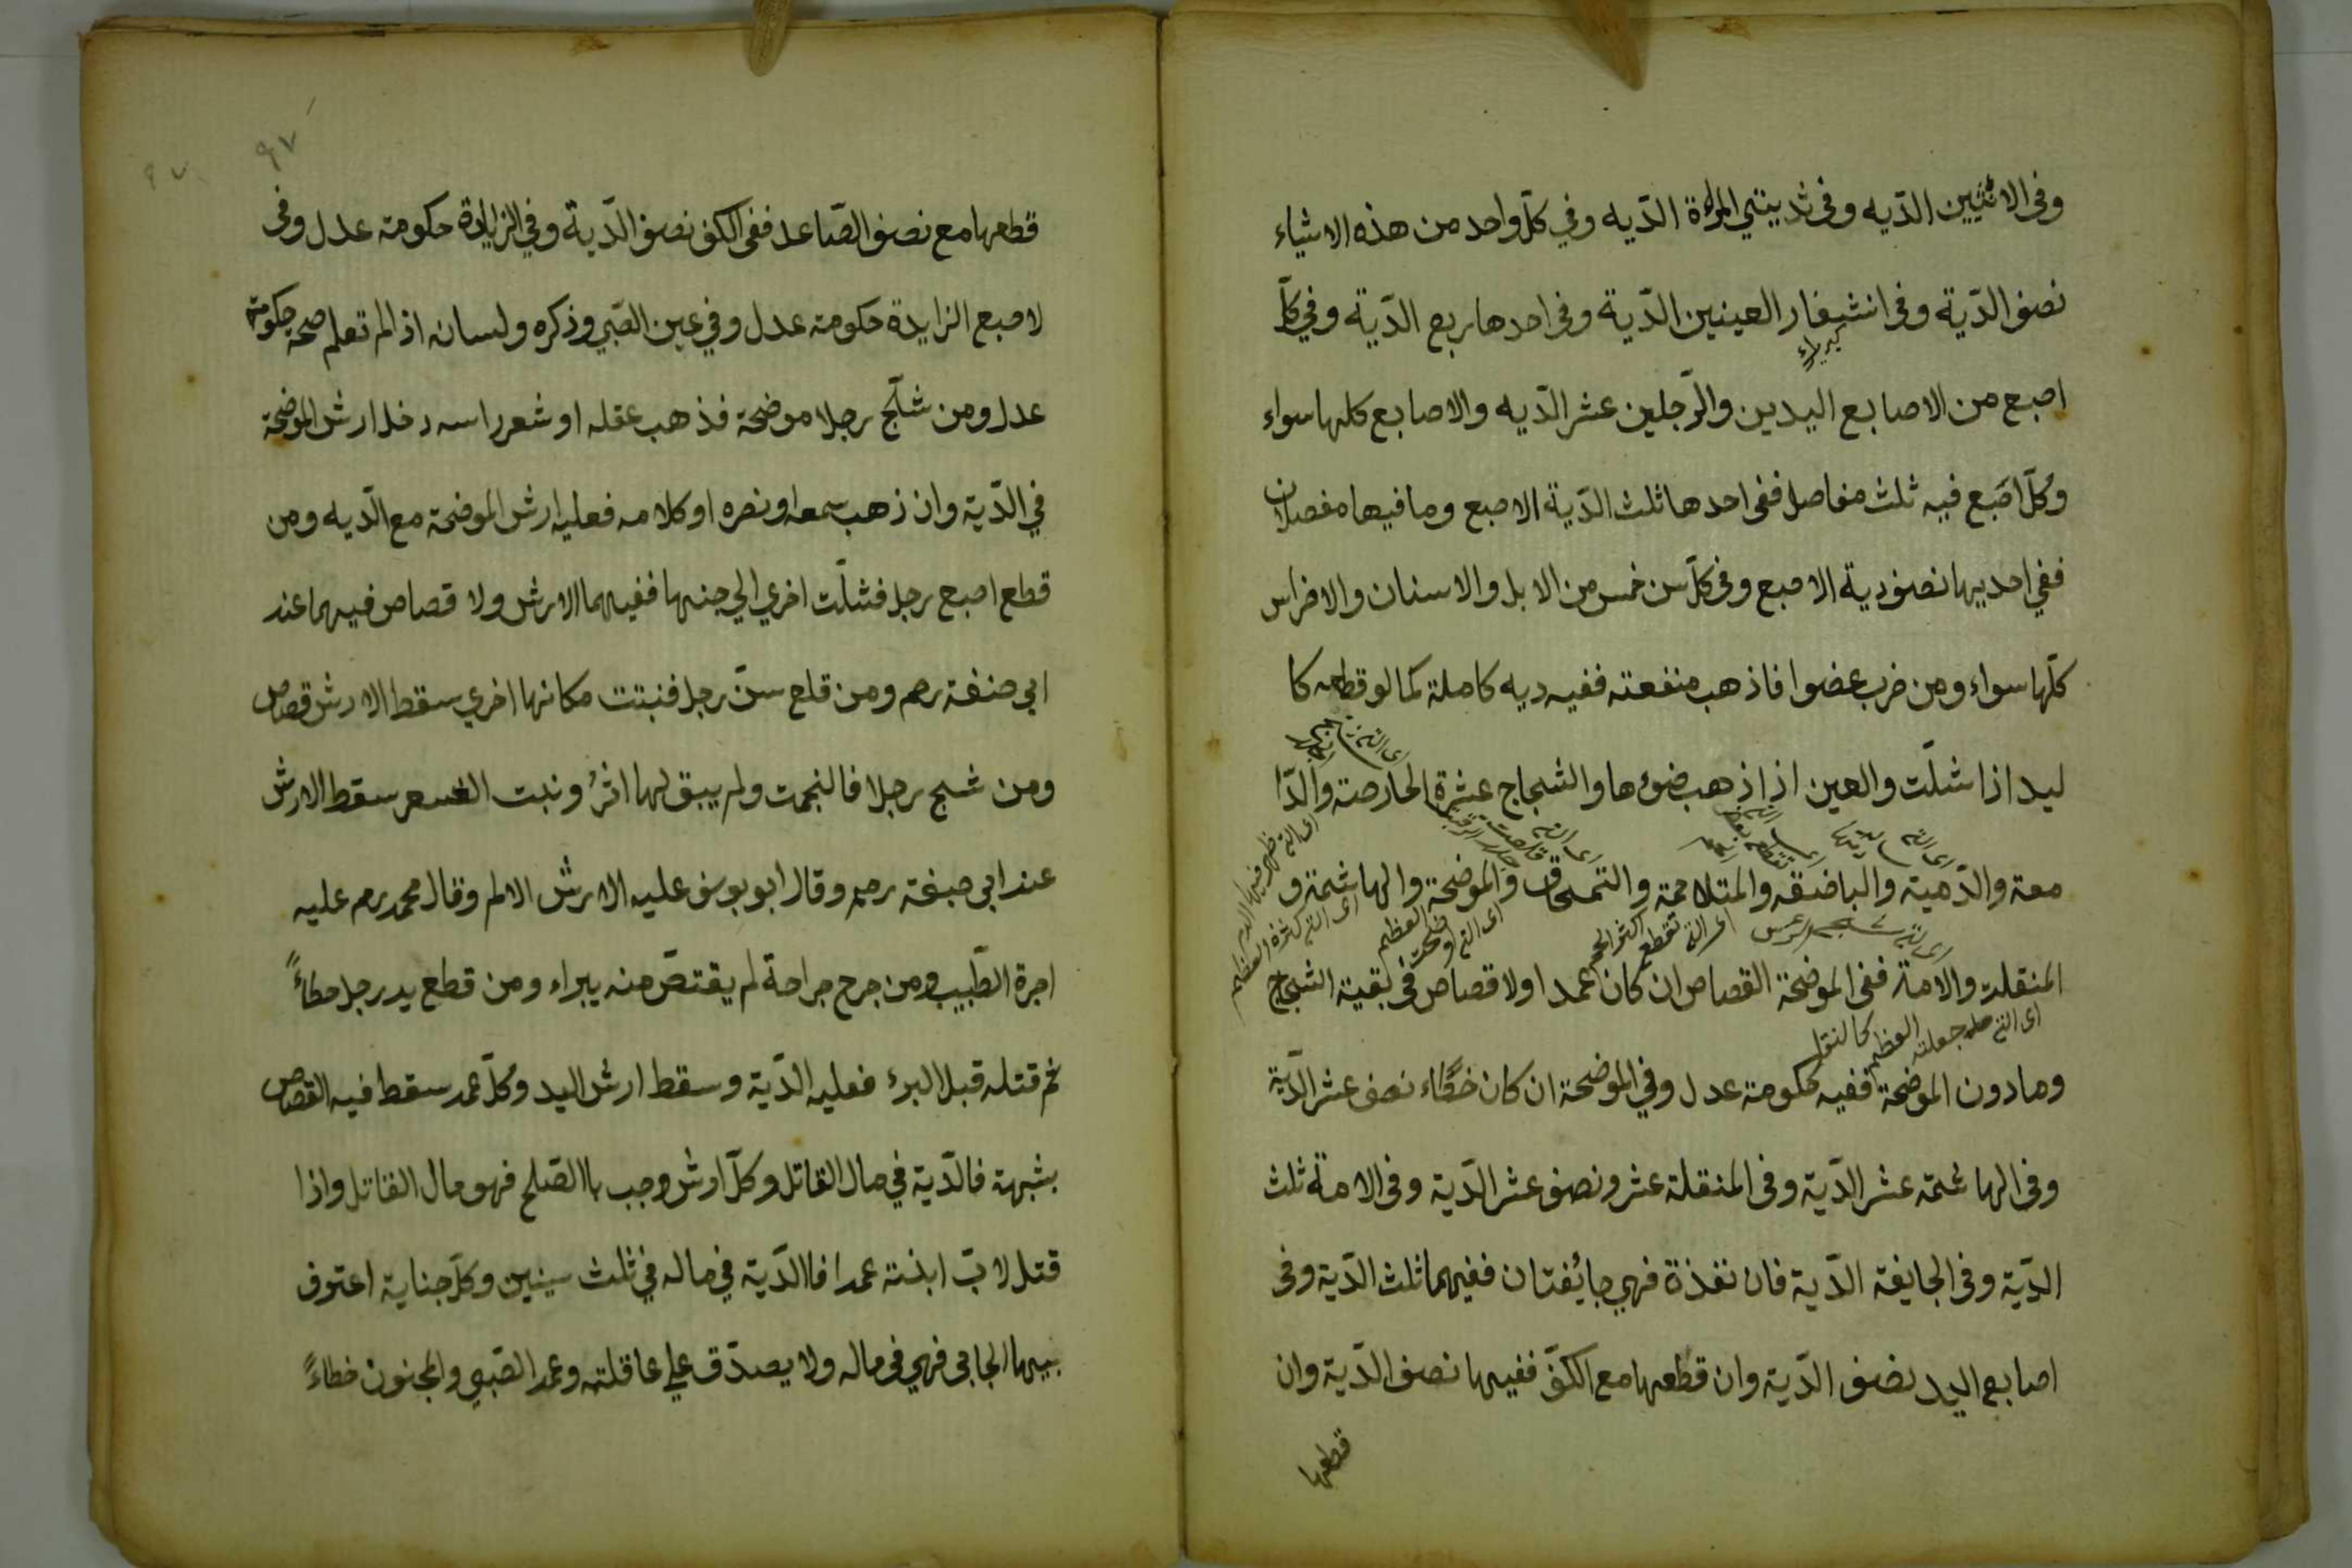 وفى الانثيين الديه وفى ثديتي المراة الديه وفي كلّ واحد من هذه الاشياء
نصف الدّية وفى اشفار العينين الدّية وفى احدها ربع الدّية وفي كلّ
اصبع من الاصابع اليدين والرّجلين عشر الدّيه والاصابع كلها سواء
وكلّ اصبع فيه ثلث مفاصل ففى احدها ثلث الدّية الاصبع وما فيها مفصلان
ففي احديها نصف دية الاصبع وفى كلّ سن خمس من الابل والاسنان والاضراس
كلّها سواء ومن ضرب عضوا فاذهب منفعته ففيه ديه كاملة كما لو قطعه كا
ليد اذا شلّت والعين اذا ذهب ضوءها والشجاج عشرة الحارصة والدّا
معة والدّمية والباضقه والمتلاحمة والتمحاق والموضحة والهاشمة و
المنقلة والامة ففى الموضحة القصاص ان كان عمدا ولا قصاص فى بقية الشجاج
اى التى جعلته العظم كالنقل
وما دون الموضحة ففيه حكومة عدل وفي الموضحة ان كان خطاء نصف عشر الدّية
وفى الهاشمة عشر الدّية وفى المنقلة عشر ونصف عشر الدّية وفى الامة ثلث
الدّية وفى الجايفة الدّية فان نفذة فهي جائفتان ففيهما ثلث الدّية وفى
اصابع اليد نصف الدّية وان قطعها مع الكفّ ففيها نصف الدّية وان
قطعها
٩٧
قطعها مع نصف الصّاعد ففى الكف نصف الدّية وفي الزيادة حكومة عدل وفى
لاصبع الزايدة حكومة عدل وفي عين الصّبي وذكره ولسانه اذا لم تعلم صحه حكومة
عدل ومن شلّج رجلا موضحة فذهب عقله او شعر راسه دخل ارش الموضحة
في الدّية وان ذهب سمعه او نصره او كلامه فعليه ارش الموضحة مع الدّيه ومن
قطع اصبع رجل فشلّت اخري الي جنبها ففيهما الارش ولا قصاص فيهما عند
ابي حنفة رحم ومن قلع سنّ رجل فنبتت مكانها اخري سقط الارش قصاص
ومن شج رجلا فالنجمت ولم يبق لها اثر ونبت الشعر سقط الارش
عند ابي حنيفة رحم وقال ابو يوسف عليه الارش الالم وقال محمد رحم عليه
اجرة الطّبيب ومن جرح جراحة لم يقتصّ منه يبراء ومن قطع يد رجل خطاءً
ثم قتله قبل البرء فعليه الدّية وسقط ارش اليد وكلّ عمد سقط فيه القصاص
بشبهة فالدّية في مال القاتل وكلّ ارش وجب باالصّلح فهو مال القاتل واذا
قتل لابّ ابنته عمدا فاالدّية في ماله في ثلث سينين وكلّ جناية اعتوف
بيها الجاني فهي فى ماله ولا يصدّق علي عاقلته وعمد الصّبي والمجنون خطاءً